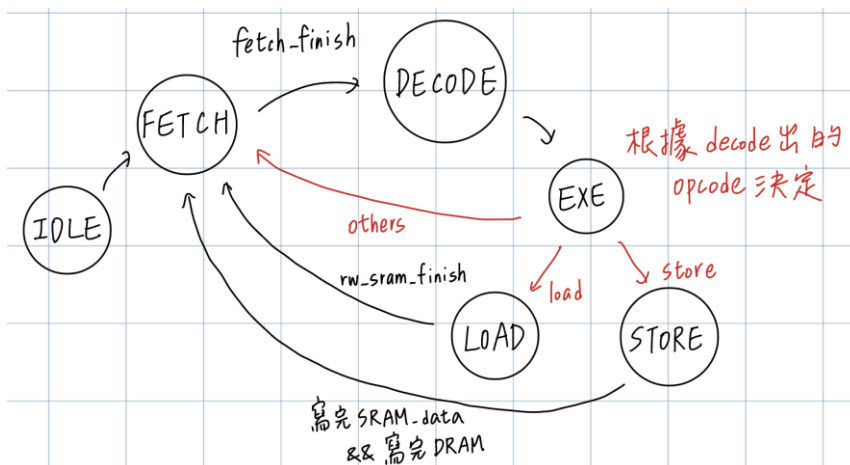 fetch_finish
DECODE
FETCH
根據 decode出的
opcode 決定
EXE
IDLE
others
rw_sram_finish
load
store
LOAD
STORE
寫完 SRAM_data
&& 寫完 DRAM